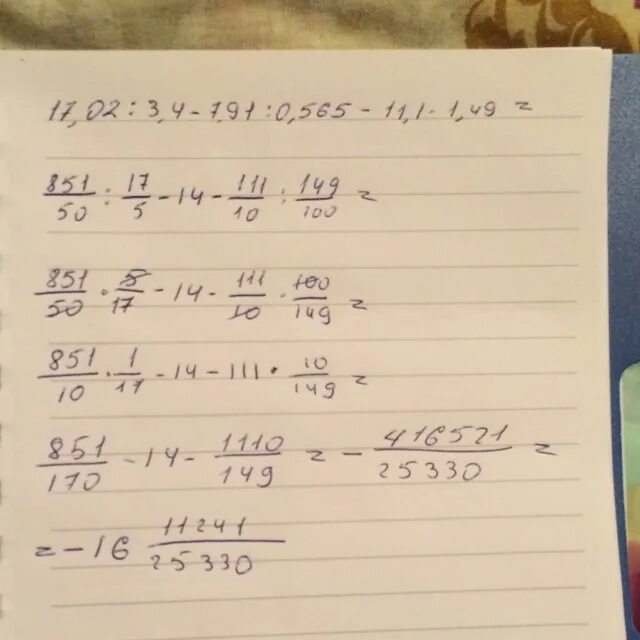 17,02 : 3,4 - 7,91 : 0,565 - 11,1 · 1,49 =
851/50 : 17/5 - 14 - 111/10 : 149/100 =
851/50 · 5/17 - 14 - 111/10 · 100/149 =
851/10 · 1/17 - 14 - 111 · 10/149 =
851/170 - 14 - 1110/149 = - 416521/25330 =
= - 16 11241/25330